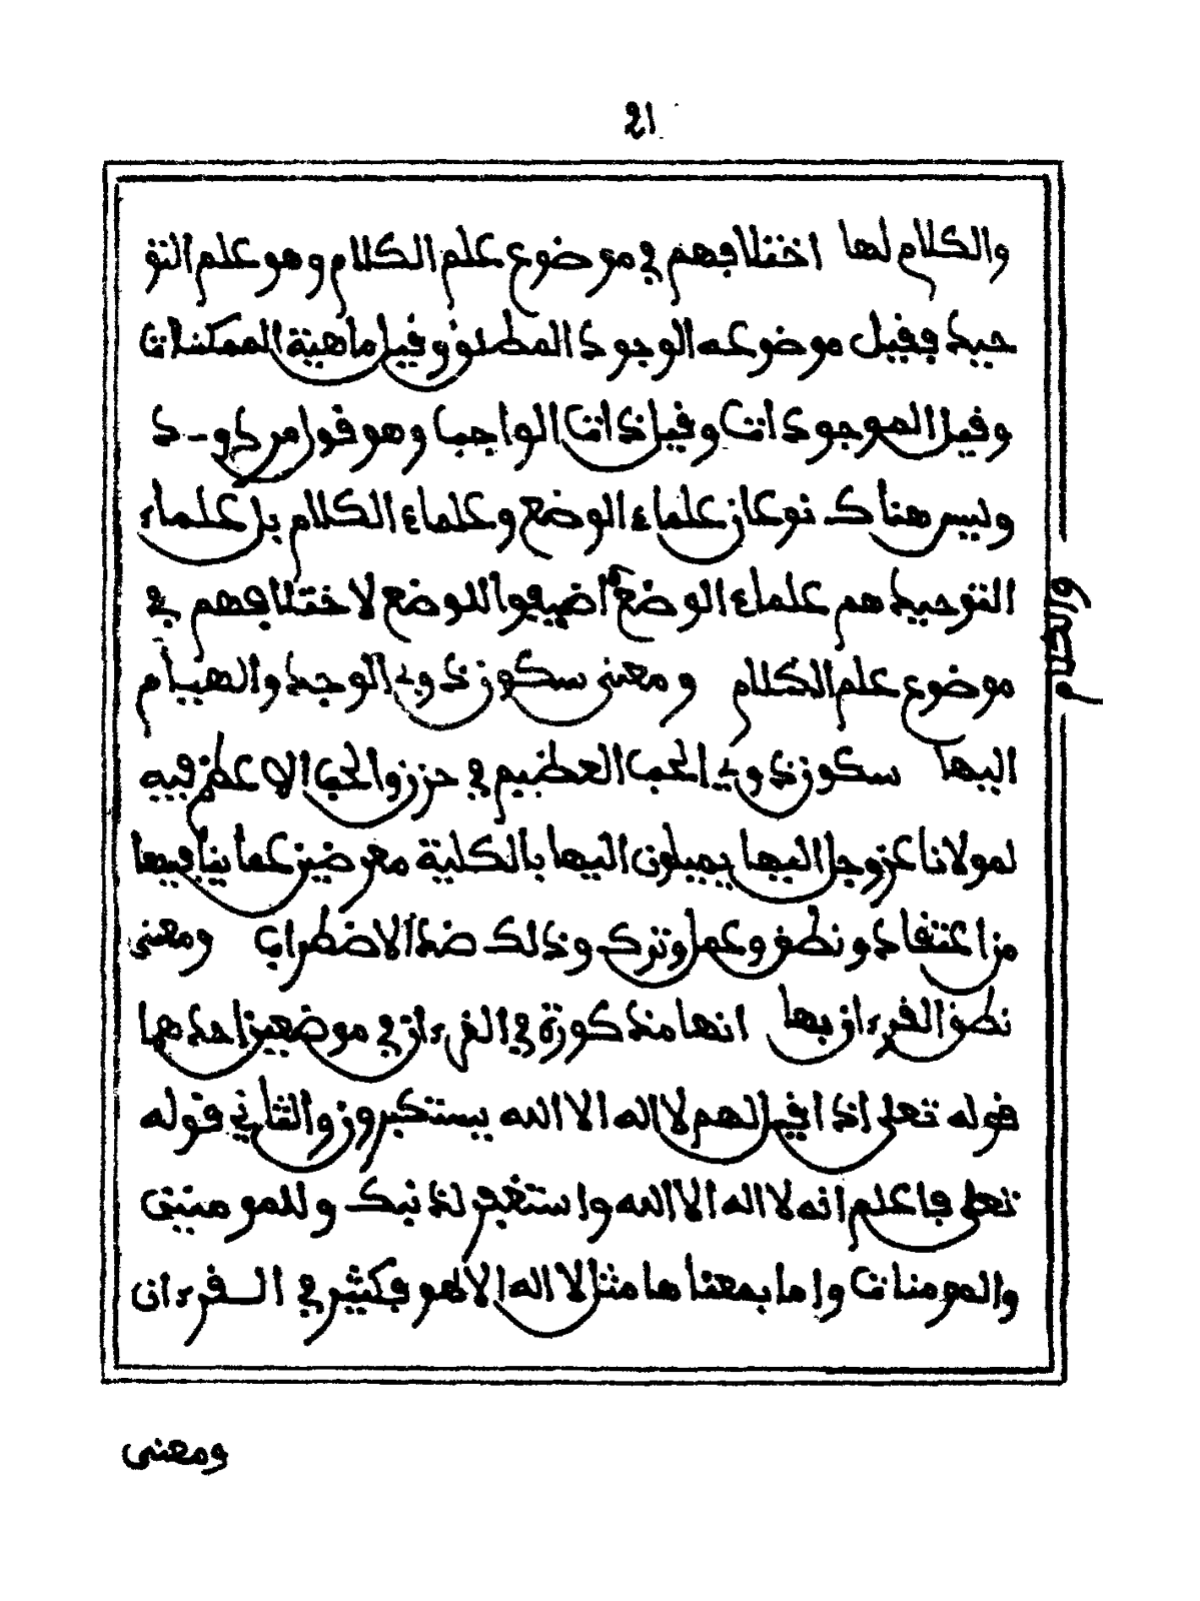 21
والكلام لها اختلافهم في موضوع علم الكلام وهو علم التو
حيد فقيل موضوعه الوجود المطلق وقيل ماهية الممكنات
وقيل الموجودات وقيل ذات الواجب وهو قول مردود
وليس هناك نوعان علماء الوضع وعلماء الكلام بل علماء
التوحيد هم علماء الوضع اضيفوا للوضع لاختلافهم في
موضوع علم الكلام ومعنى سكون ذوي الوجد والهيام
اليها سكون ذوي الحب العظيم في حزن والحب الاعظم فيه
لمولانا عز وجل اليها يميلون اليها بالكلية معرضين عما ينافيها
من اعتقاد ونطق وعمل وترك وذلك ضد الاضطراب ومعنى
نطق القرءان بها انها مذكورة في القرءان في موضعين احدهما
قوله تعلى اذا قيل لهم لا اله الا الله يستكبرون والثاني قوله
تعلى فاعلم انه لا اله الا الله واستغفر لذنبك وللمومنين
والمومنات واما بمعناها مثل لا اله الا هو فكثير في القرءان
والكلام
ومعنى